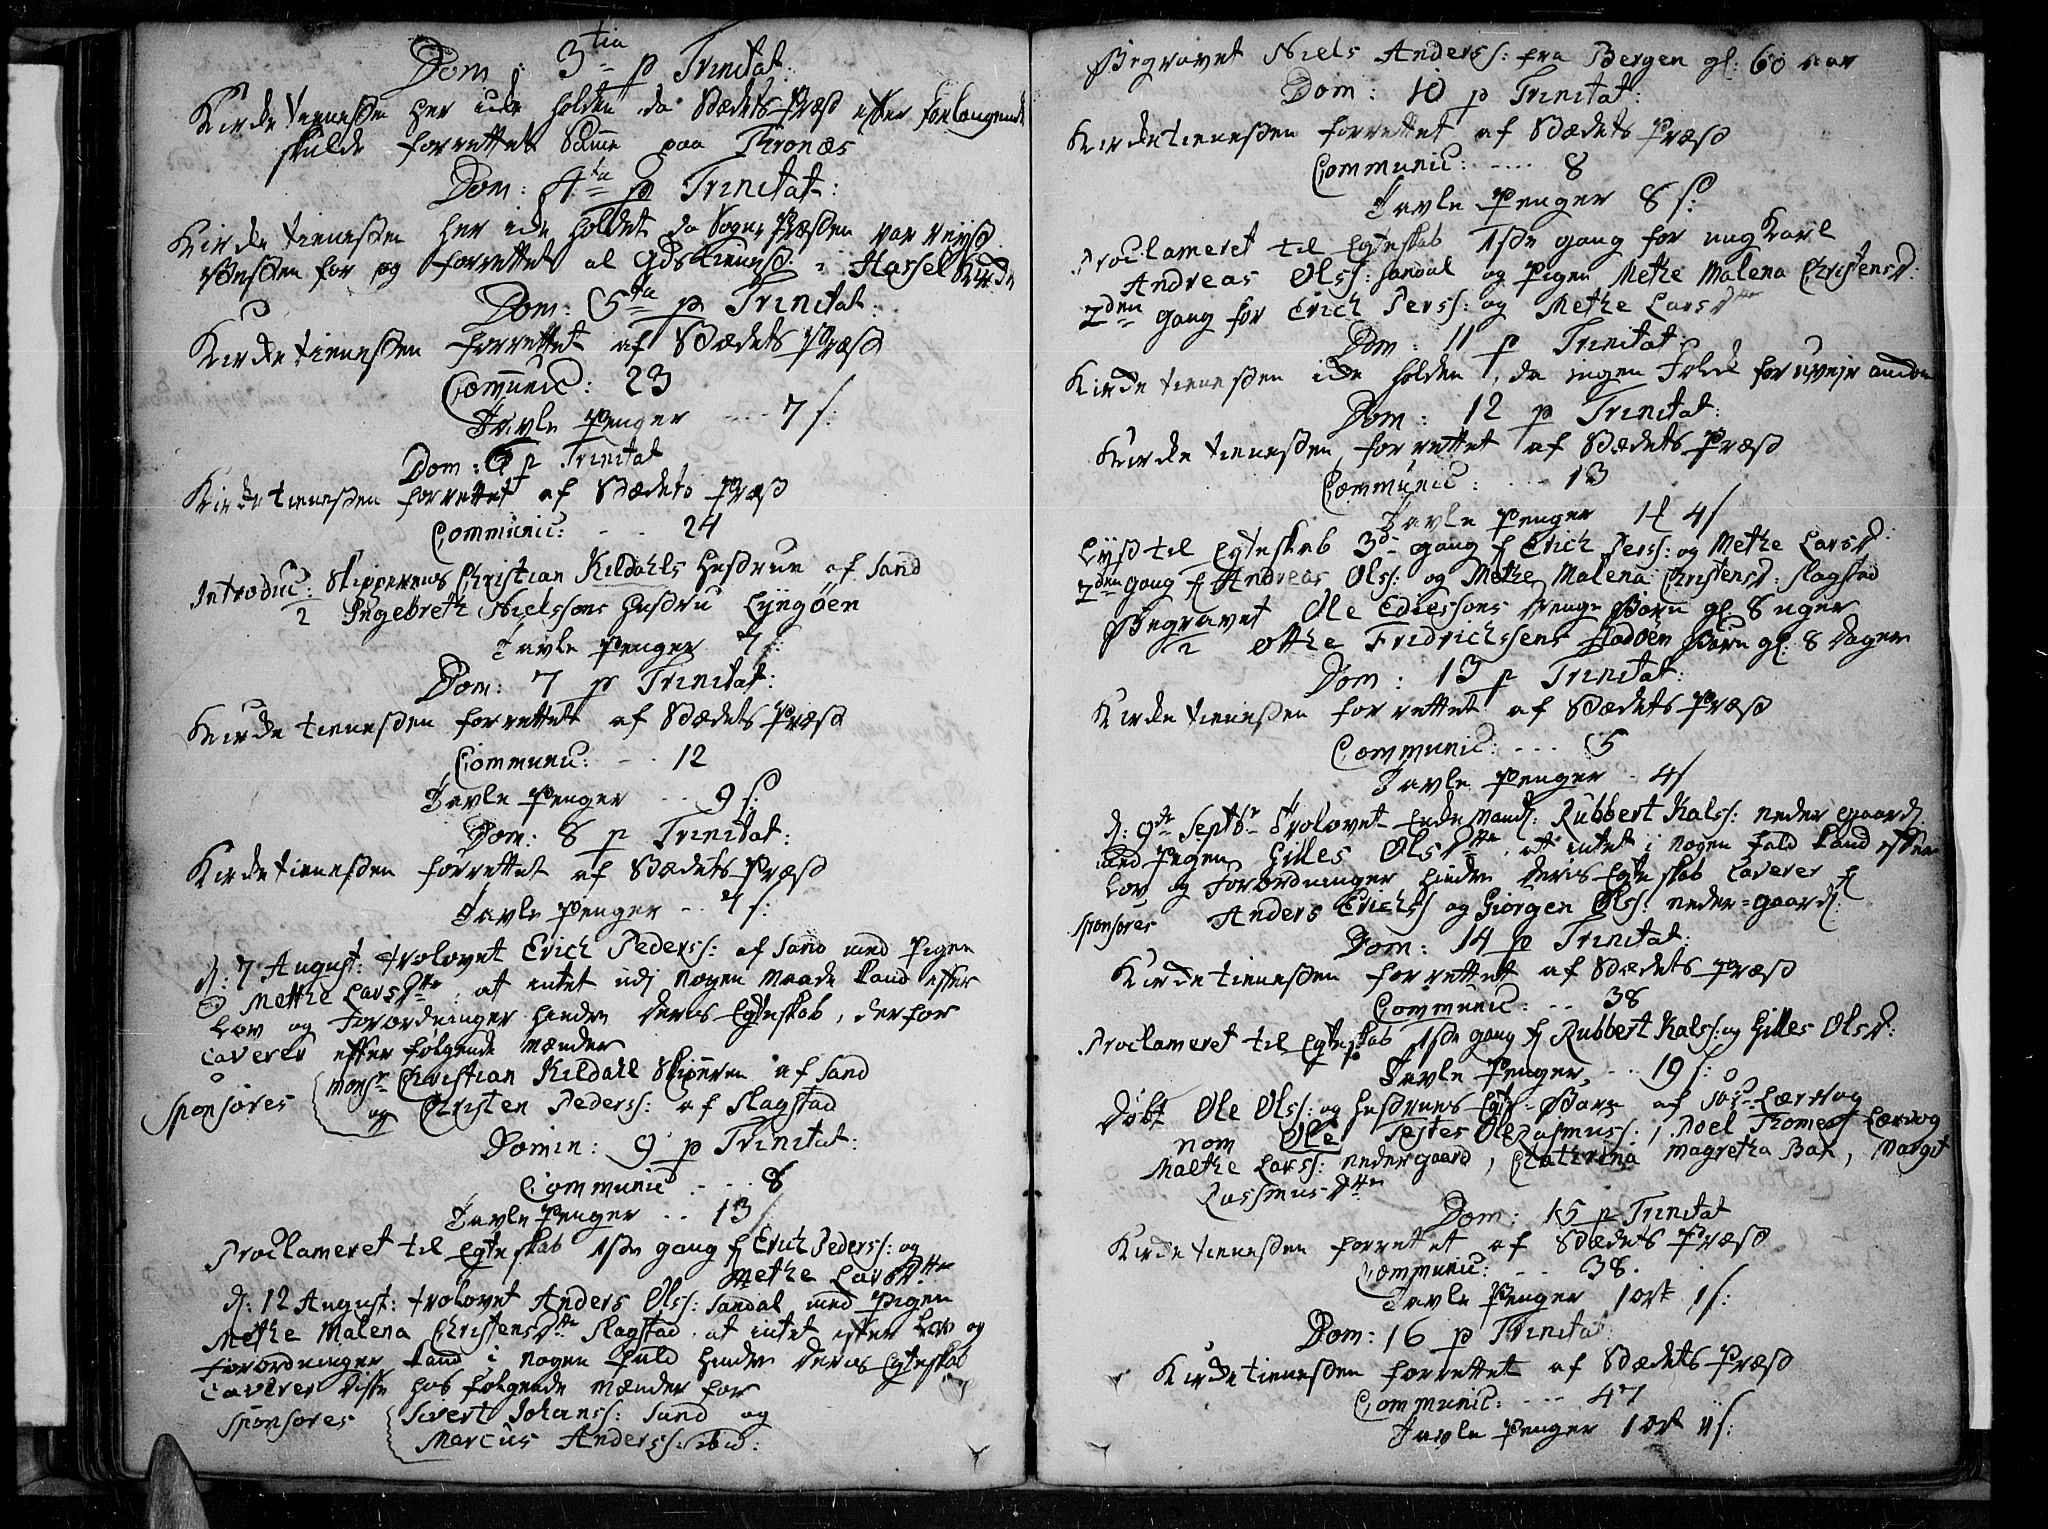 Dom: 3tia p Trinitat:
Kircke tienesten her icke holden da Stædets Præst efter Forlangende
skulde forrettet Samme paa Tronæs
Dom: 4ta p Trinitat:
Kircke tienesten her icke holdet da Sogne Præsten var reyst
for og forrettet al Gds tienest i Hassel Kircke
Dom: 5ta p Trinitat:
Kircke tienesten forrettet af Stædets Præst
Communic: 23
Tavle Penger ---- 7 s:
Dom: 6 p Trinitat
Kircke tienesten forrettet af Stædets Præst
Communic: - - 24
Introduc: Skipperens Christian Kildahls Hustrue af Sand
2 Ingebreth Nielssøns Hustru Lyngöen
Tavle Penger 4 s:
Dom: 7 p Trinitat:
Kircke tienesten forrettet af Stædets Præst
Communic: - - 12
Tavle Penger - - 9 s:
Dom: 8 p Trinitat:
Kircke tienesten forrettet af Stædets Præst
Tavle Penger - - 4 s:
d: 7 August: trolovet Erich Pederss: af Sand med Pigen
Methe Larsdtr: at intet udj nogen maade kand efter
Lov og Forordninger hindre deres Egteskab, derfor
caverer efter følgende Mænder
Sponsores Monsr Christian Kildall Skipperen af Sand
og Christen Pederss: af Slagstad
Domin: 9 p Trinitat:
Communic: - - - 8
Tavle Penger - - 13 s
Proclameret til Egteskab 1ste gang f Erich Peders: og
Methe Larsdtr:
d: 12 August: trolovet Anders Olss: Sandal med Pigen
Methe Malena Christensdtr Slagstad at intet efter Lov og
Forordninger kand i nogen fald hindre deres Egteskab
caverer disse hos følgende Mænder for
Sponsores Sivert Johanss: Sand og
Marcus Anderss: ibid:
Begravet Niels Anderss: fra Bergen gl: 60 aar
Dom: 10 p Trinitat:
Kircketienesten forrettet af Stædets Præst
Communic: ---- 8
Tavle Penger 8 s:
Proclameret til Egteskab 1ste gang for ung Karl
Andreas Olss: Sandal og Pigen Methe Malena Christensd:
2den gang for Erich Perss: og Methe Larsdtr
Dom: 11 p Trinitat
Kircke tienesten icke holden, da ingen Folck for uveir
Dom: 12 p Trinitat:
Kircke tienesten forrettet af Stædets Præst
Communic: --- 13
Tavle Penger 1 4 s
Lyst til Egteskab 3de gang f Erich Perss: og Methe Larsd:
2den gang f Andreas Olss: og Methe Malena Christensd: Slagstad
Begravet Ole Ediessøns Drenge Barn gl: 8 uger
2 Otthe Fridrichssens Barn gl: 8 Dager
Dom: 13 p Trinitat:
Kircke tienesten forrettet af Stædets Præst
Communic: --- 5
Tavle Penger - 4 s
d: 9de Septbr trolovet Rubbert Kalss: nedergaard
med Pigen Gilles Olsdtr, at intet i nogen fald kand efter
Lov og Forordninger hindre deres Egteskab caverer f
Sponsores Anders Erichss og Giørgen Olss: neder=gaard:
Dom: 14 p Trinitat:
Kircke tienesten forrettet af Stædets Præst
Communic: - - 38
Proclameret til Egteskab 1ste gang f Rubbert Kalss: og Gilles Olsd:
Tavle Penger - - 19 s:
Døbt Ole Olss: og Hustrues Egte-Barn af Lærvog
nom Ole Testes Ole Rasmuss:, Poel Thomes Lærvog
Malthe Larss: nedergaard, Chatirina Magretha Bax, Margit
Rassmusdtr
Dom: 15 p Trinitat
Kircke tienesten forrettet af Stædets Præst
Communic: - - 38.
Tavle Penger 1 ort 1 s:
Dom: 16 p Trinitat:
Kircke tienesten forrettet af Stædets Præst
Communic: --- 47
Tavle Penger 1 ort 11 s: